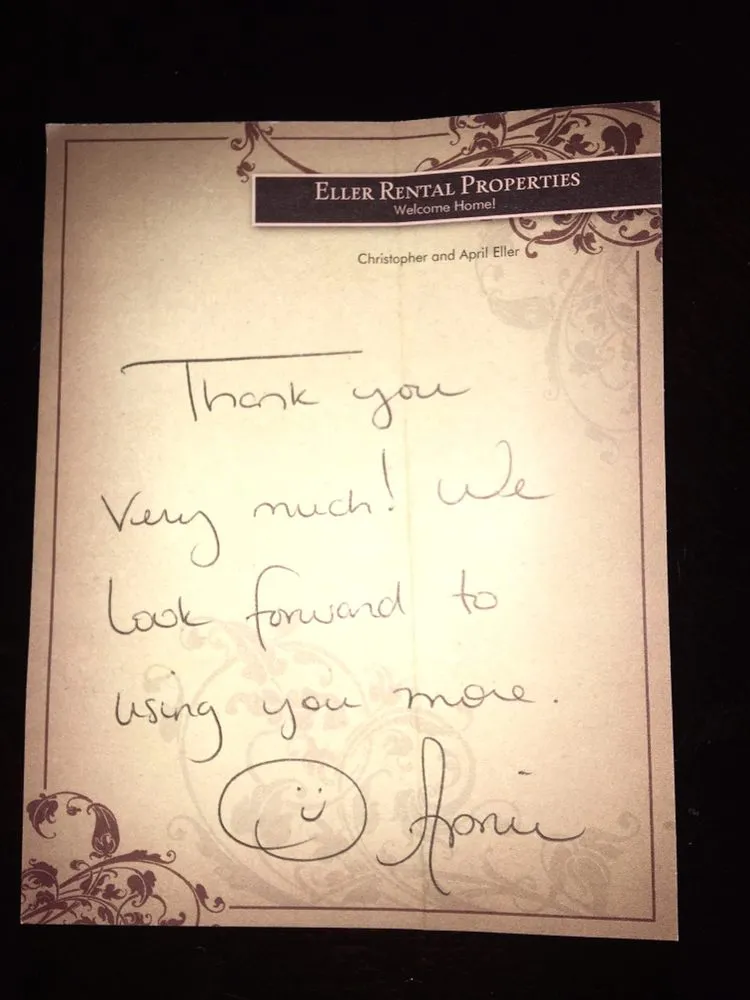 ELLER RENTAL PROPERTIES
Welcome Home!
Christopher and April Eller
Thank you
Very much! We
Look forward to
using you more.